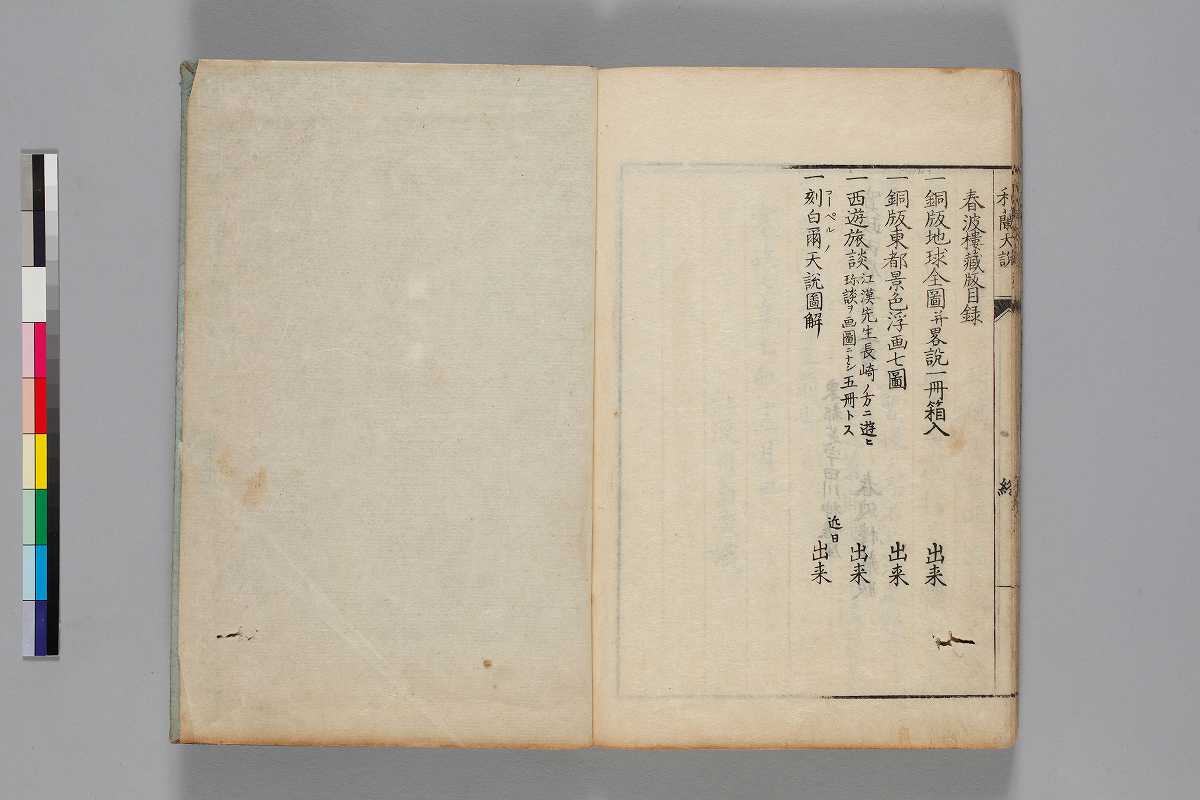 和蘭天説
終
春波樓藏版目録
一銅版地球全圖并畧説一冊箱入 出来
一銅版東都景色浮画七圖 出来
一西遊旅談江漢先生長崎ノ方ニ遊ヒ
珎談ヲ画圖ニナシ五冊トス 出来
一刻白爾天説圖解 近日出来
コーペルノ